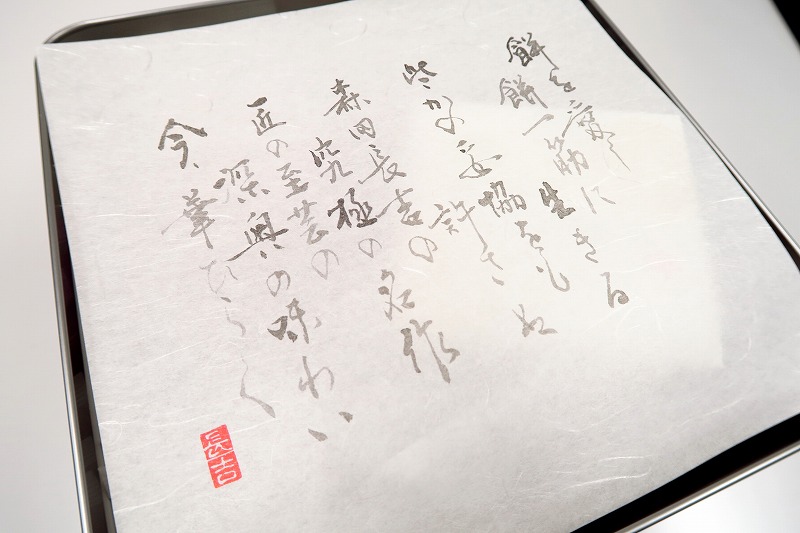 餅を愛し
餅一筋に生きる
些かの妥協をも
許さぬ
森田長吉の
究極の名作
匠の至芸の
深奥の味わい
今、華ひらく
長吉